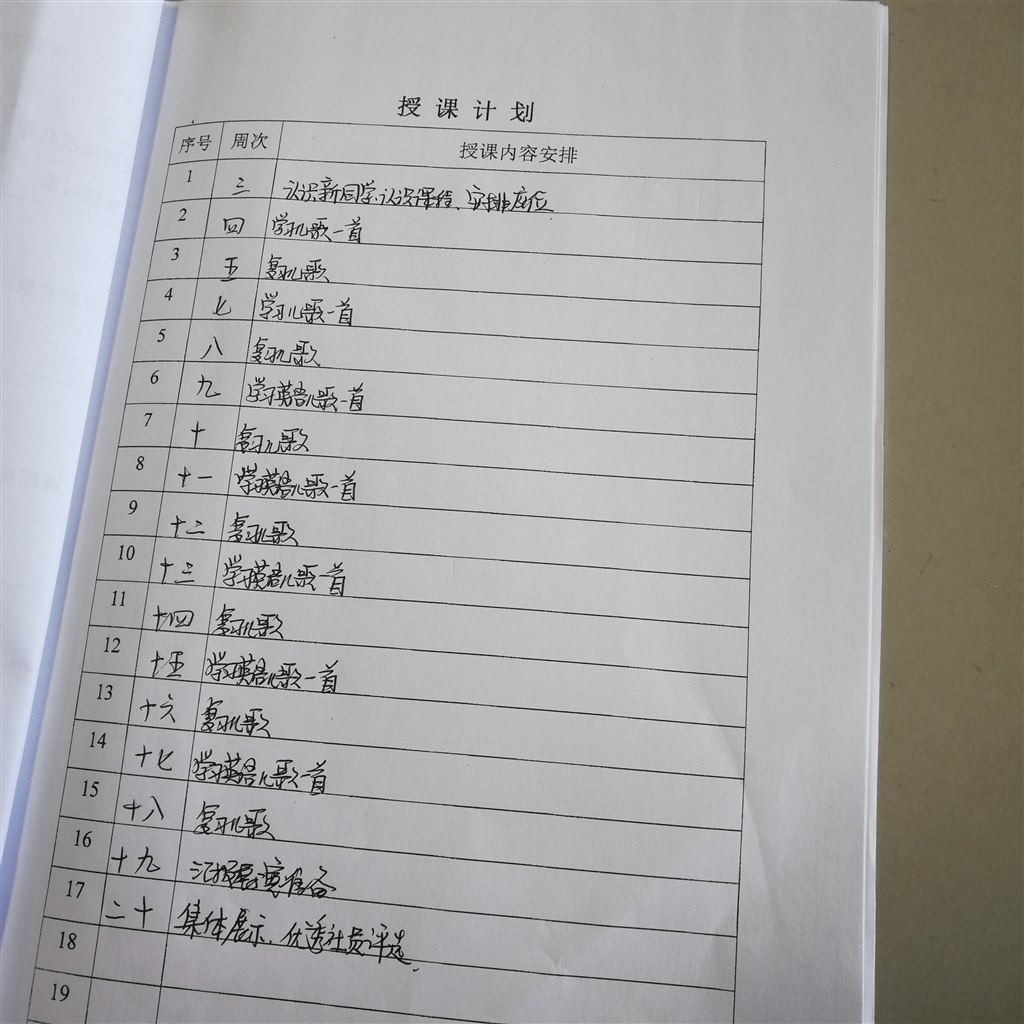 授课计划
序号 周次 授课内容安排
1 三 认识新同学、认识课程、安排座位
2 四 学习儿歌一首
3 五 复习儿歌
4 七 学习儿歌一首
5 八 复习儿歌
6 九 学习英语儿歌一首
7 十 复习儿歌
8 十一 学习英语儿歌一首
9 十二 复习儿歌
10 十三 学习英语儿歌一首
11 十四 复习儿歌
12 十五 学习英语儿歌一首
13 十六 复习儿歌
14 十七 学习英语儿歌一首
15 十八 复习儿歌
16 十九 汇报展演准备
17 二十 集体展示、优秀社员评选
18
19